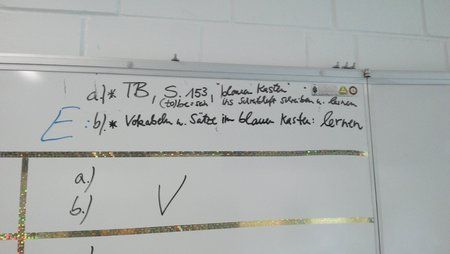 a.)* TB, S. 153 "blauen Kasten"
ins Schulheft schreiben u. lernen
E b.)* Vokabeln u. Sätze im blauen Kasten: lernen
a.)
b.) V